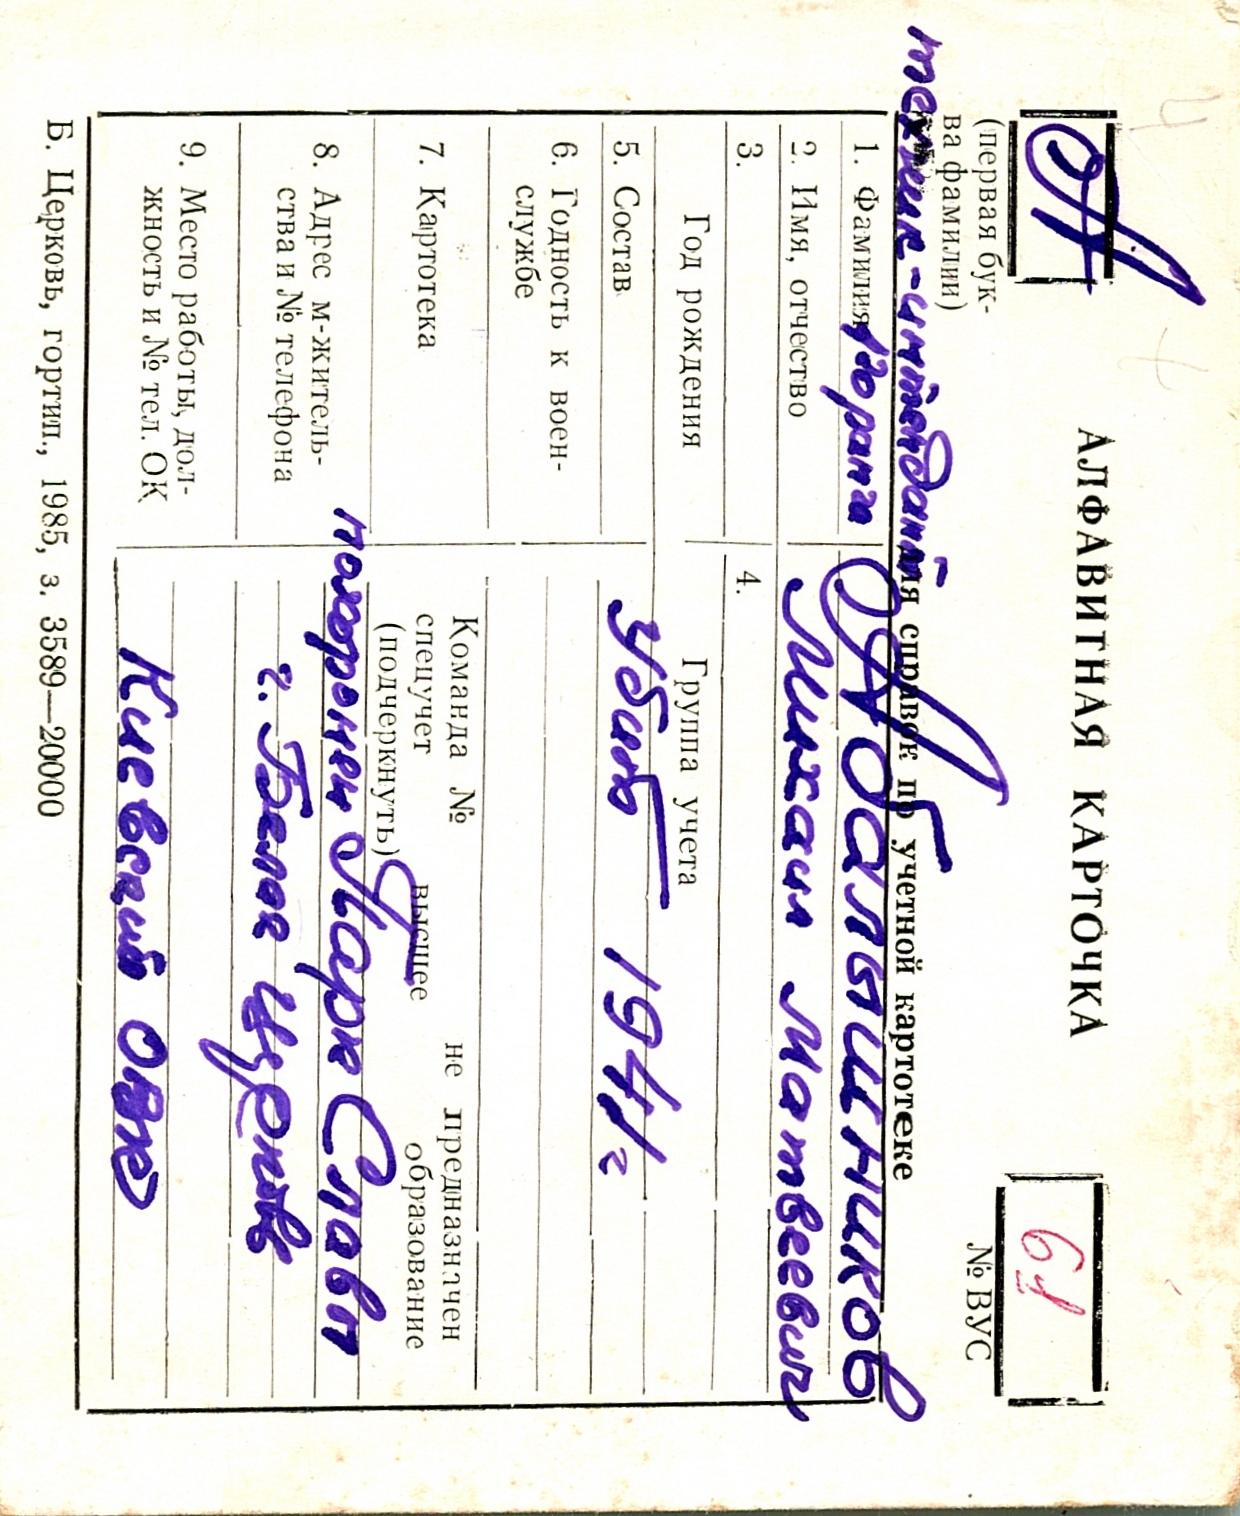 АЛФАВИТНАЯ КАРТОЧКА
А
61
(первая бук-
ва фамилии)
№ ВУС
для справок по учетной картотеке
техник-интендант
1. Фамилия
Абалышников
1го ранга
2. Имя, отчество
Михаил Матвеевич
3.
4.
Год рождения
Группа учета
5. Состав
Убит 1941 г
6. Годность к воен-
службе
7. Картотека
Команда №
не предназначен
спецучет
высшее
образование
(подчеркнуть)
8. Адрес м-житель-
ства и № телефона
похоронен Парк Славы
г. Белая Церковь
9. Место работы, дол-
жность и № тел. ОК
Киевский
Б. Церковь, гортип., 1985, з. 3589—20000